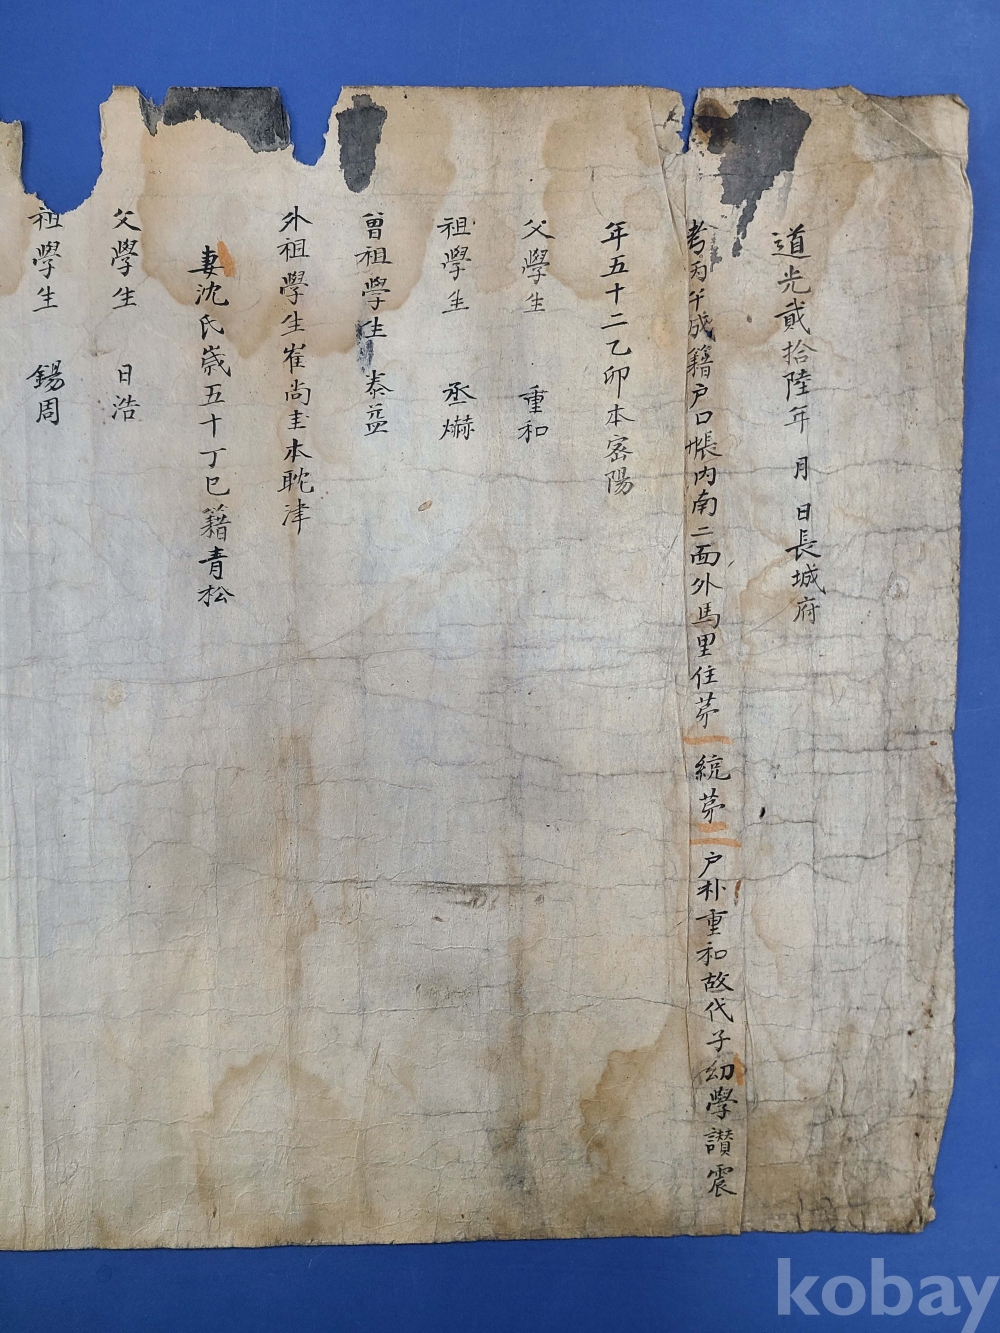 道光貳拾陸年 月 日長城府
考丙午成籍戶口帳內南二面外馬里住苐一統苐二戶朴重和故代子幼學讃震
年五十二乙卯本密陽
父學生 重和
祖學生 丞爀
曾祖學生 泰益
外祖學生崔尚圭本耽津
妻沈氏歲五十丁巳籍青松
父學生 日浩
祖學生 錫周
kobay